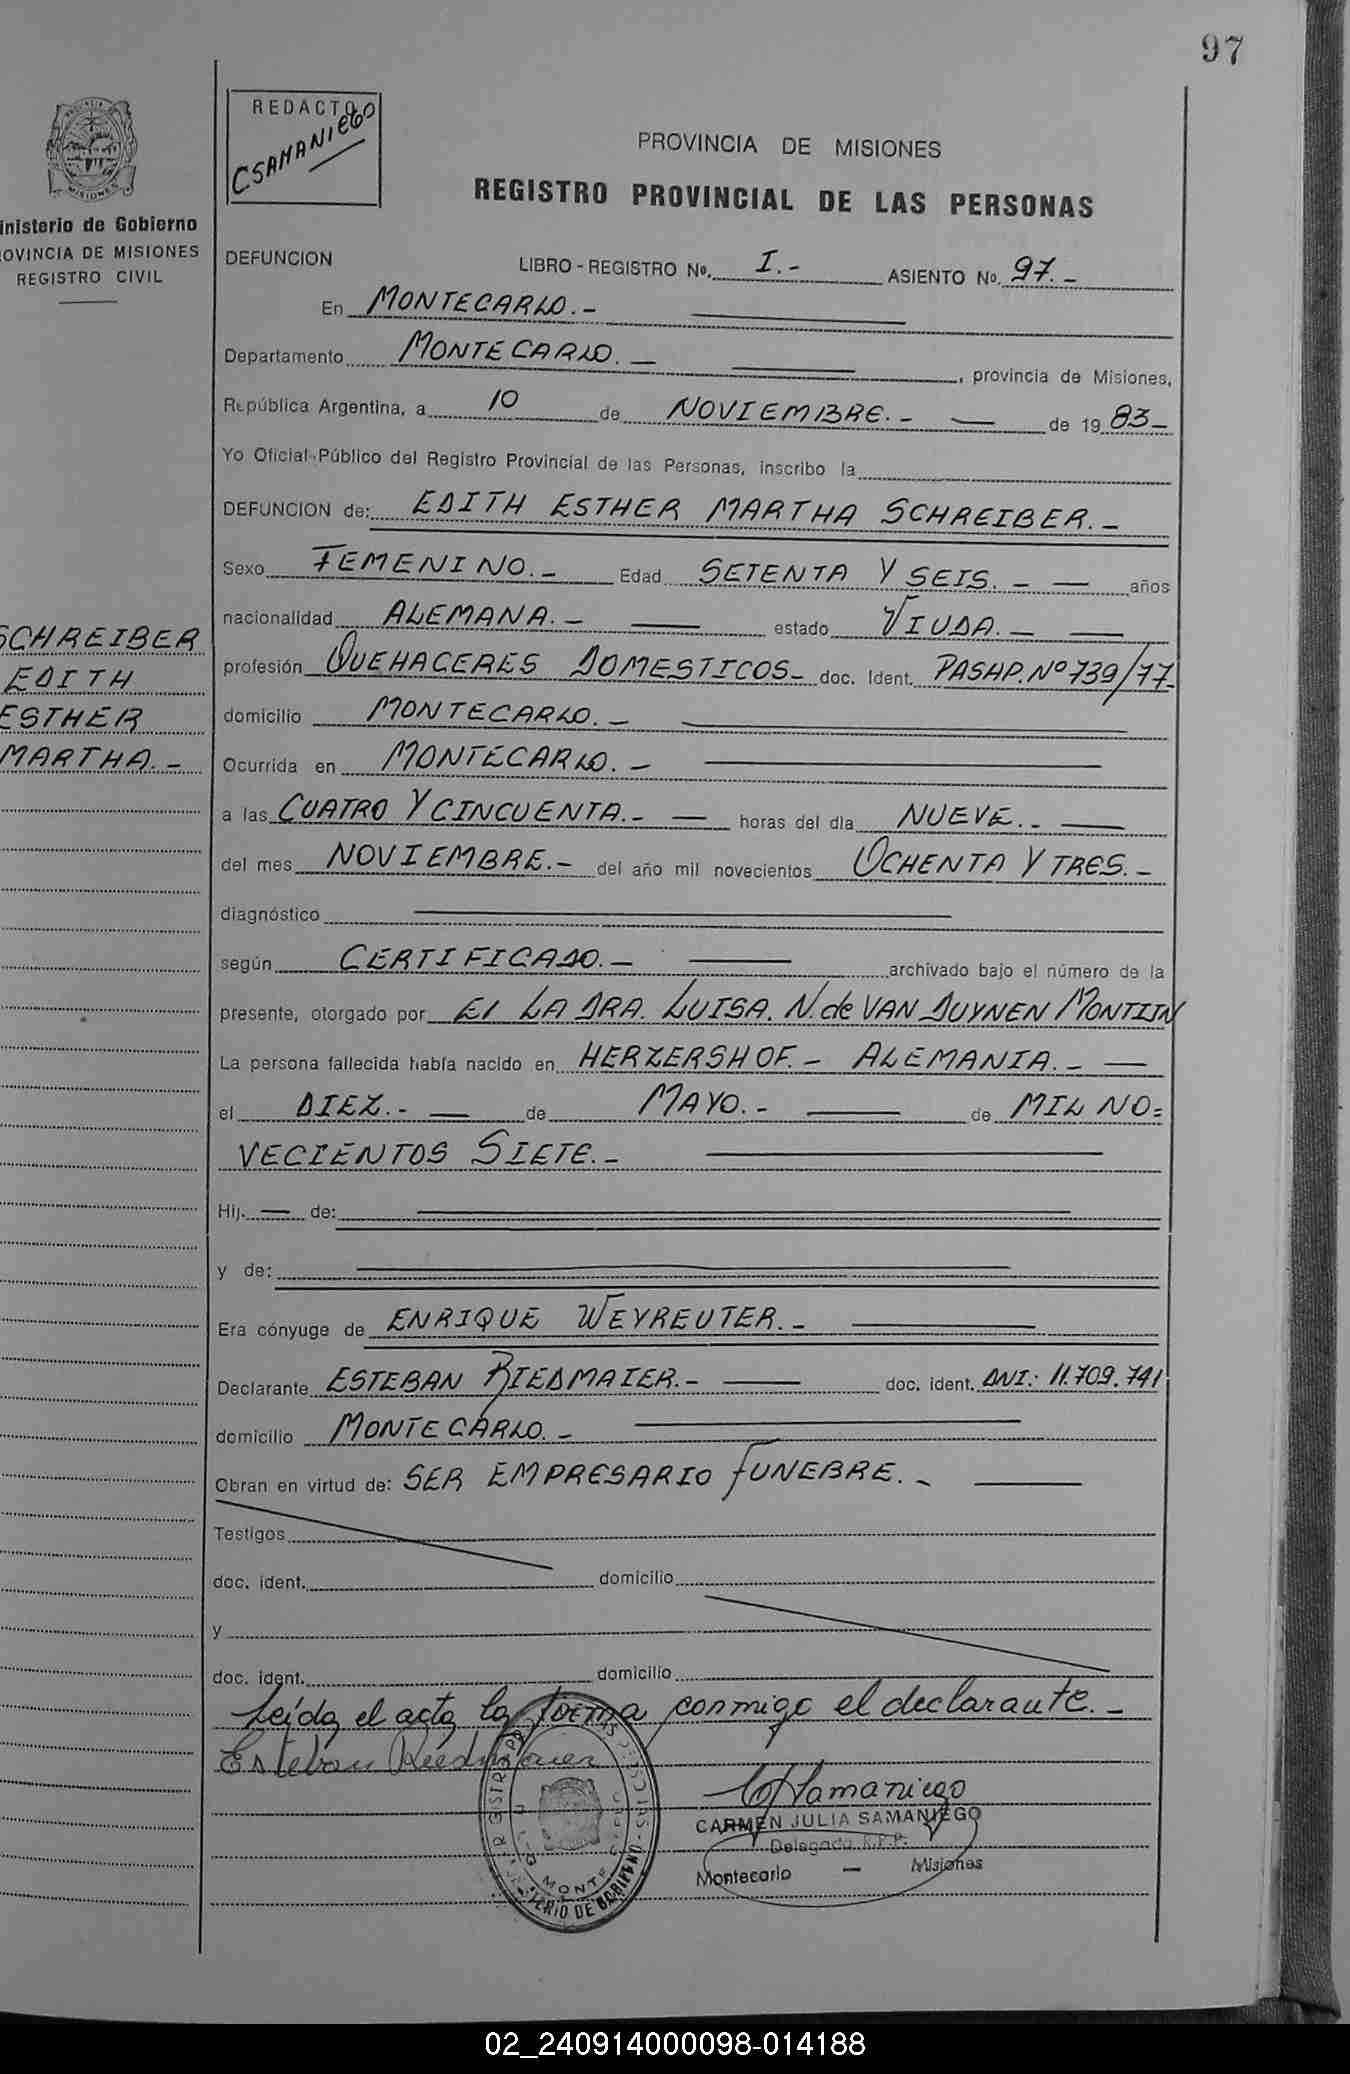 97
REDACTO
CSAMANIEGO
PROVINCIA DE MISIONES
REGISTRO PROVINCIAL DE LAS PERSONAS
MISIONES
inisterio de Gobierno
OVINCIA DE MISIONES
REGISTRO CIVIL
DEFUNCION LIBRO-REGISTRO Nº. I.- ASIENTO No. 97.-
En MONTECARLO.-
Departamento MONTECARLO.- , provincia de Misiones,
República Argentina, a 10 de NOVIEMBRE.- de 1983-
Yo Oficial Público del Registro Provincial de las Personas, inscribo la
DEFUNCION de: EDITH ESTHER MARTHA SCHREIBER.-
Sexo FEMENINO.- Edad SETENTA Y SEIS.- años
nacionalidad ALEMANA.- estado VIUDA.-
profesión QUEHACERES DOMESTICOS- doc. Ident. PASAP. Nº 739/77-
domicilio MONTECARLO.-
Ocurrida en MONTECARLO.-
a las CUATRO Y CINCUENTA.- horas del día NUEVE.-
del mes NOVIEMBRE.- del año mil novecientos OCHENTA Y TRES.-
diagnóstico
según CERTIFICADO.- archivado bajo el número de la
presente, otorgado por El LA DRA. LUISA. N. de VAN DUYNEN MONTIJN
La persona fallecida había nacido en HERZERSHOF.- ALEMANIA.-
el DIEZ.- de MAYO.- de MIL NO=
VECIENTOS SIETE.-
Hij. de:
y de:
Era cónyuge de ENRIQUE WEYREUTER.-
Declarante ESTEBAN RIEDMAIER.- doc. ident. DNI: 11.709.741
domicilio MONTECARLO.-
Obran en virtud de: SER EMPRESARIO FUNEBRE.-
Testigos
doc. ident. domicilio
y
doc. ident. domicilio
Leída el acta la firma conmigo el declarante.-
Esteban Riedmaier
CSamaniego
CARMEN JULIA SAMANIEGO
Delegada R.P.P.
Montecarlo — Misiones
SCHREIBER
EDITH
ESTHER
MARTHA.-
02_240914000098-014188